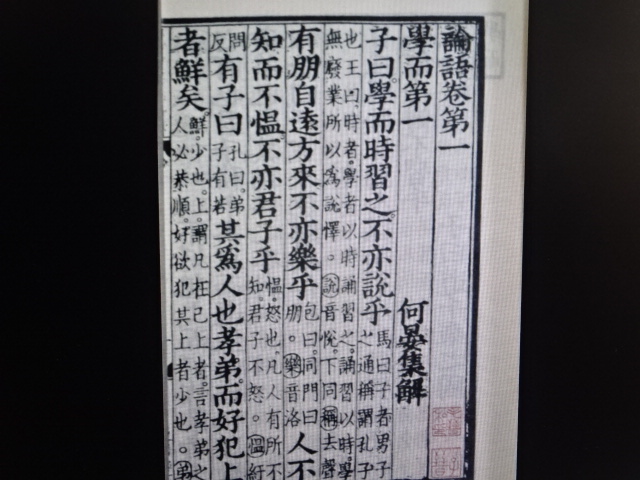 論語卷第一
學而第一 何晏集解
子曰學而時習之。不亦說乎 馬曰子者男子之通稱謂孔子
也王曰。時者。學者以時誦習之。誦習以時。學無廢業。所以爲說懌。說音悅。下同稱去聲
有朋自遠方來不亦樂乎 包曰。同門曰朋。樂音洛 人不
知而不慍。不亦君子乎 慍。怒也。凡人有所不知。君子不怒。慍紆
問反 有子曰 孔曰。弟子有若 其爲人也孝弟。而好犯上
者鮮矣 鮮。少也。上。謂凡在己上者。言孝弟之人必恭順。好欲犯其上者少也。弟